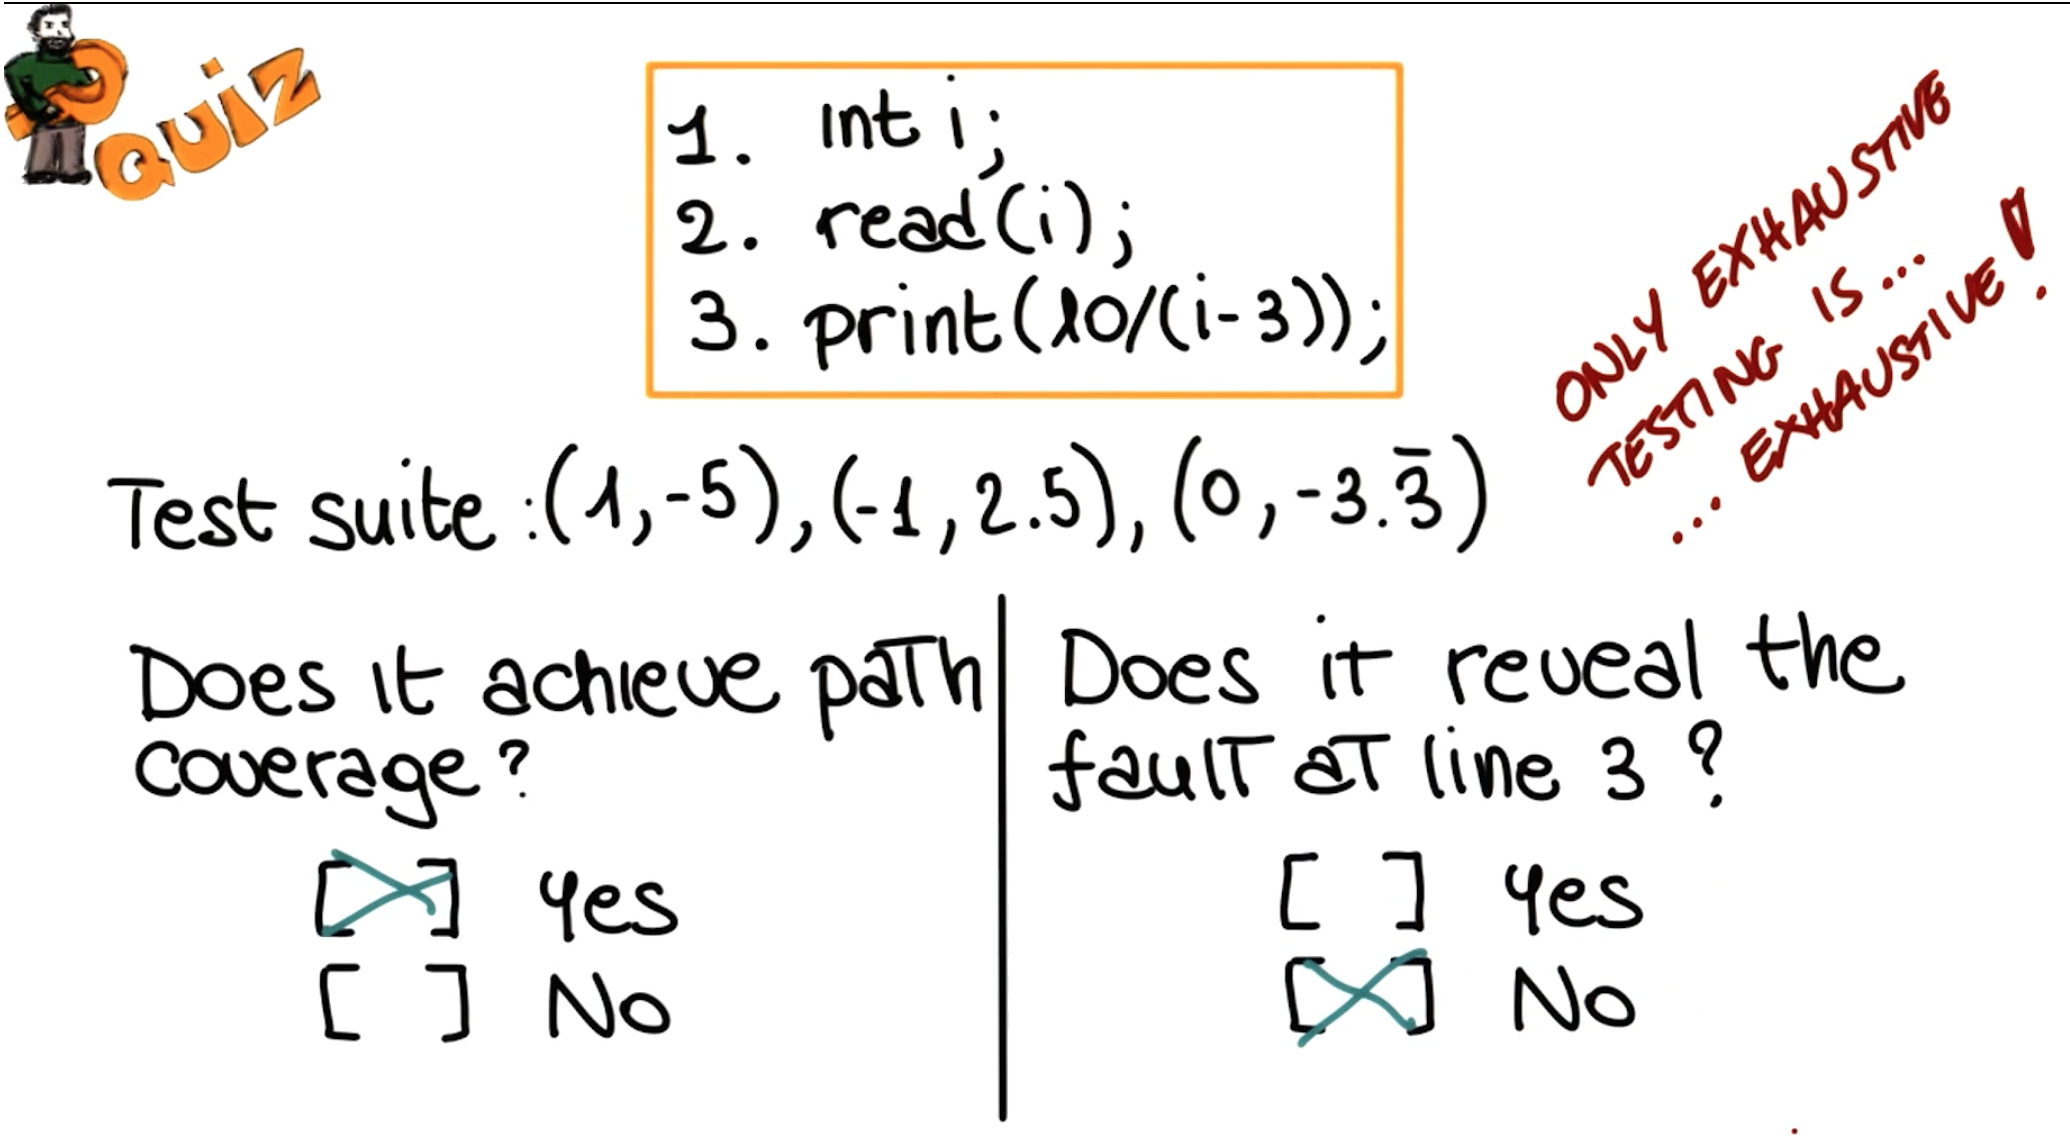 QUIZ
1. int i;
2. read(i);
3. print(10/(i-3));
ONLY EXHAUSTIVE
TESTING IS...
... EXHAUSTIVE!
Test suite:(1,-5),(-1,2.5),(0,-3.3̅)
Does it achieve path
coverage?
[X] Yes
[ ] No
Does it reveal the
fault at line 3?
[ ] Yes
[X] No